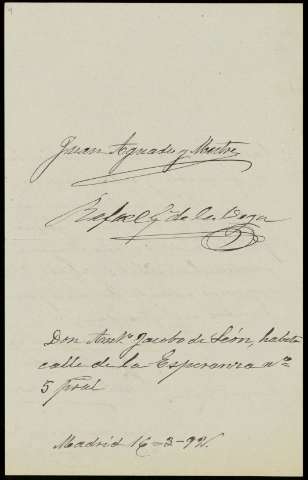 Juan Aguado y Mestre
Rafael G. de la Vega
Don Ant.º Jacobo de León, habita
calle de la Esperanza nº
5 pral
Madrid 16-3-92.